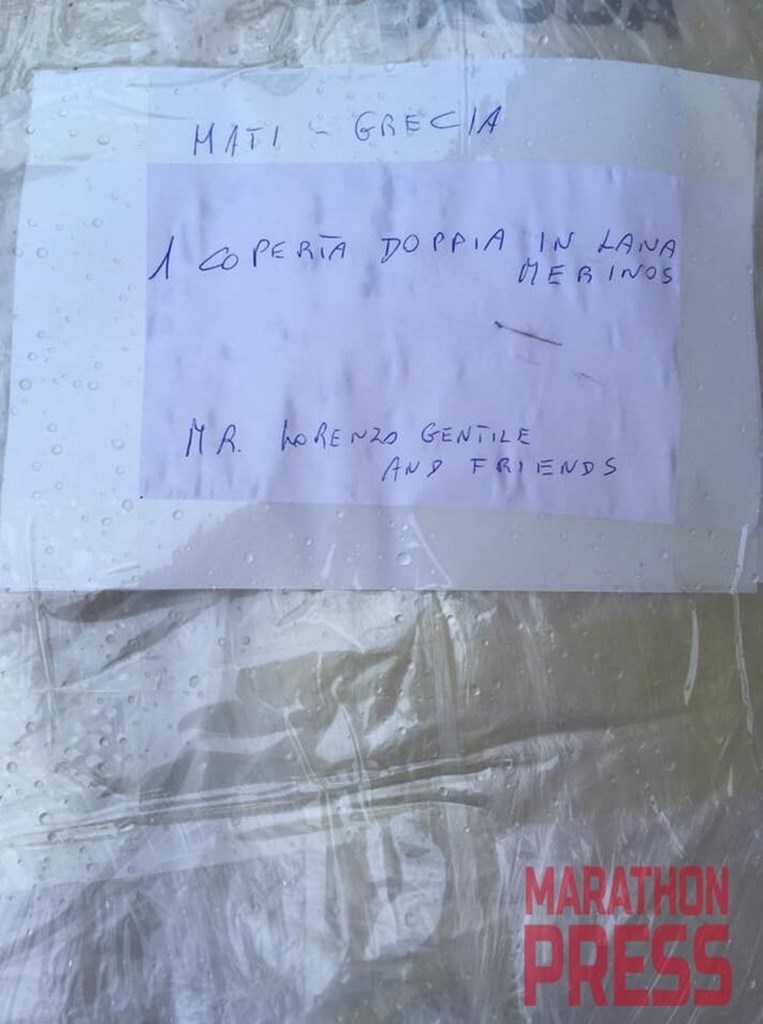 MATI - GRECIA
1 COPERTA DOPPIA IN LANA
MERINOS
MR. LORENZO GENTILE
AND FRIENDS
MARATHON
PRESS